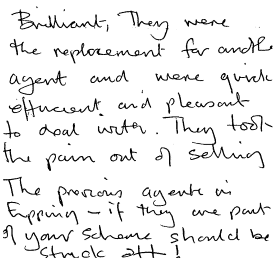 Brilliant, They were
the replacement for another
agent and were quick
efficient and pleasant
to deal with. They took
the pain out of selling
The previous agents in
Epping - if they are part
of your scheme should be
struck off!